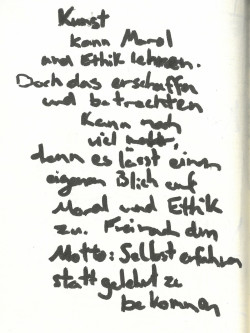 Kunst
kann Moral
und Ethik lehren.
Doch das erschaffen
und betrachten
kann noch
viel mehr,
denn es lässt einen
eigenen Blick auf
Moral und Ethik
zu. Frei nach dem
Motto: Selbst erfahren
statt gelehrt zu
bekommen